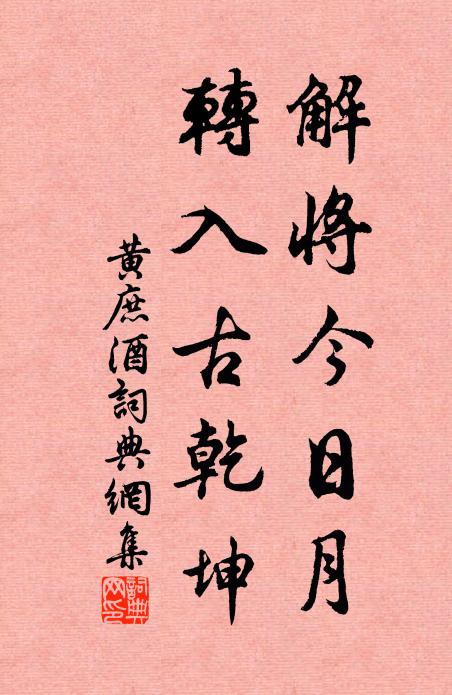 解將今日月
轉入古乾坤
黃庶酒詞典網集
詞典
网印